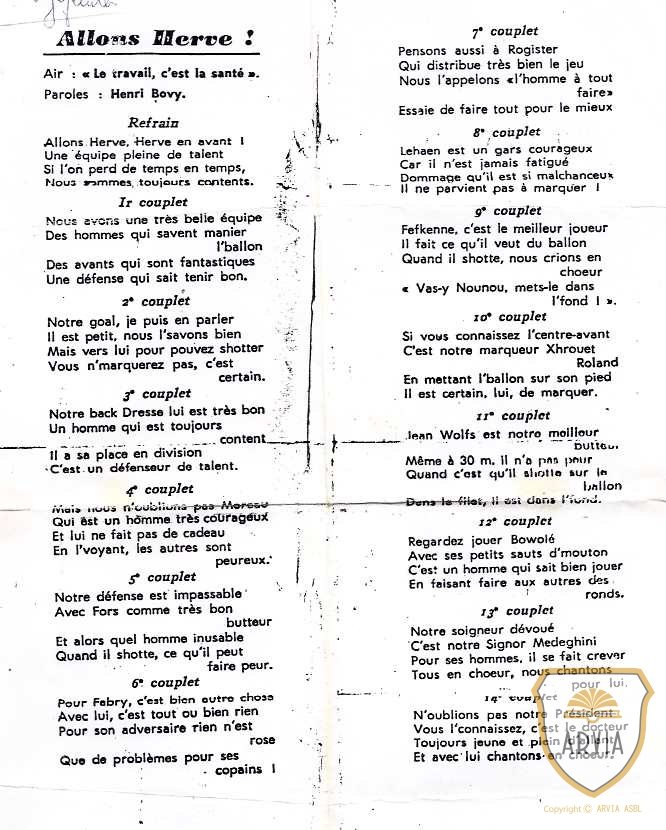 Allons Herve !
Air : « Le travail, c'est la santé ».
Paroles : Henri Bovy.
Refrain
Allons Herve, Herve en avant !
Une équipe pleine de talent
Si l'on perd de temps en temps,
Nous sommes toujours contents.
Ir couplet
Nous avons une très belle équipe
Des hommes qui savent manier
l'ballon
Des avants qui sont fantastiques
Une défense qui sait tenir bon.
2e couplet
Notre goal, je puis en parler
Il est petit, nous l'savons bien
Mais vers lui pour pouvez shotter
Vous n'marquerez pas, c'est
certain.
3e couplet
Notre back Dresse lui est très bon
Un homme qui est toujours
content
Il a sa place en division
C'est un défenseur de talent.
4e couplet
Mais nous n'oublions pas Moreau
Qui est un homme très courageux
Et lui ne fait pas de cadeau
En l'voyant, les autres sont
peureux.
5e couplet
Notre défense est impassable
Avec Fors comme très bon
butteur
Et alors quel homme inusable
Quand il shotte, ce qu'il peut
faire peur.
6e couplet
Pour Fabry, c'est bien autre chose
Avec lui, c'est tout ou bien rien
Pour son adversaire rien n'est
rose
Que de problèmes pour ses
copains !
7e couplet
Pensons aussi à Rogister
Qui distribue très bien le jeu
Nous l'appelons «l'homme à tout
faire»
Essaie de faire tout pour le mieux
8e couplet
Lehaen est un gars courageux
Car il n'est jamais fatigué
Dommage qu'il est si malchanceux
Il ne parvient pas à marquer !
9e couplet
Fefkenne, c'est le meilleur joueur
Il fait ce qu'il veut du ballon
Quand il shotte, nous crions en
choeur
« Vas-y Nounou, mets-le dans
l'fond ! ».
10e couplet
Si vous connaissez l'centre-avant
C'est notre marqueur Xhrouet
Roland
En mettant l'ballon sur son pied
Il est certain, lui, de marquer.
11e couplet
Jean Wolfs est notre meilleur
butteur
Même à 30 m. il n'a pas peur
Quand c'est qu'il shotte sur le
ballon
Dans le filet, il est dans l'fond.
12e couplet
Regardez jouer Bowolé
Avec ses petits sauts d'mouton
C'est un homme qui sait bien jouer
En faisant faire aux autres des
ronds.
13e couplet
Notre soigneur dévoué
C'est notre Signor Medeghini
Pour ses hommes, il se fait crever
Tous en choeur, nous chantons
pour lui.
14e couplet
N'oublions pas notre Président
Vous l'connaissez, c'est le docteur
Toujours jeune et plein d'allant
Et avec lui chantons en choeur.
ARVIA
Copyright © ARVIA ASBL